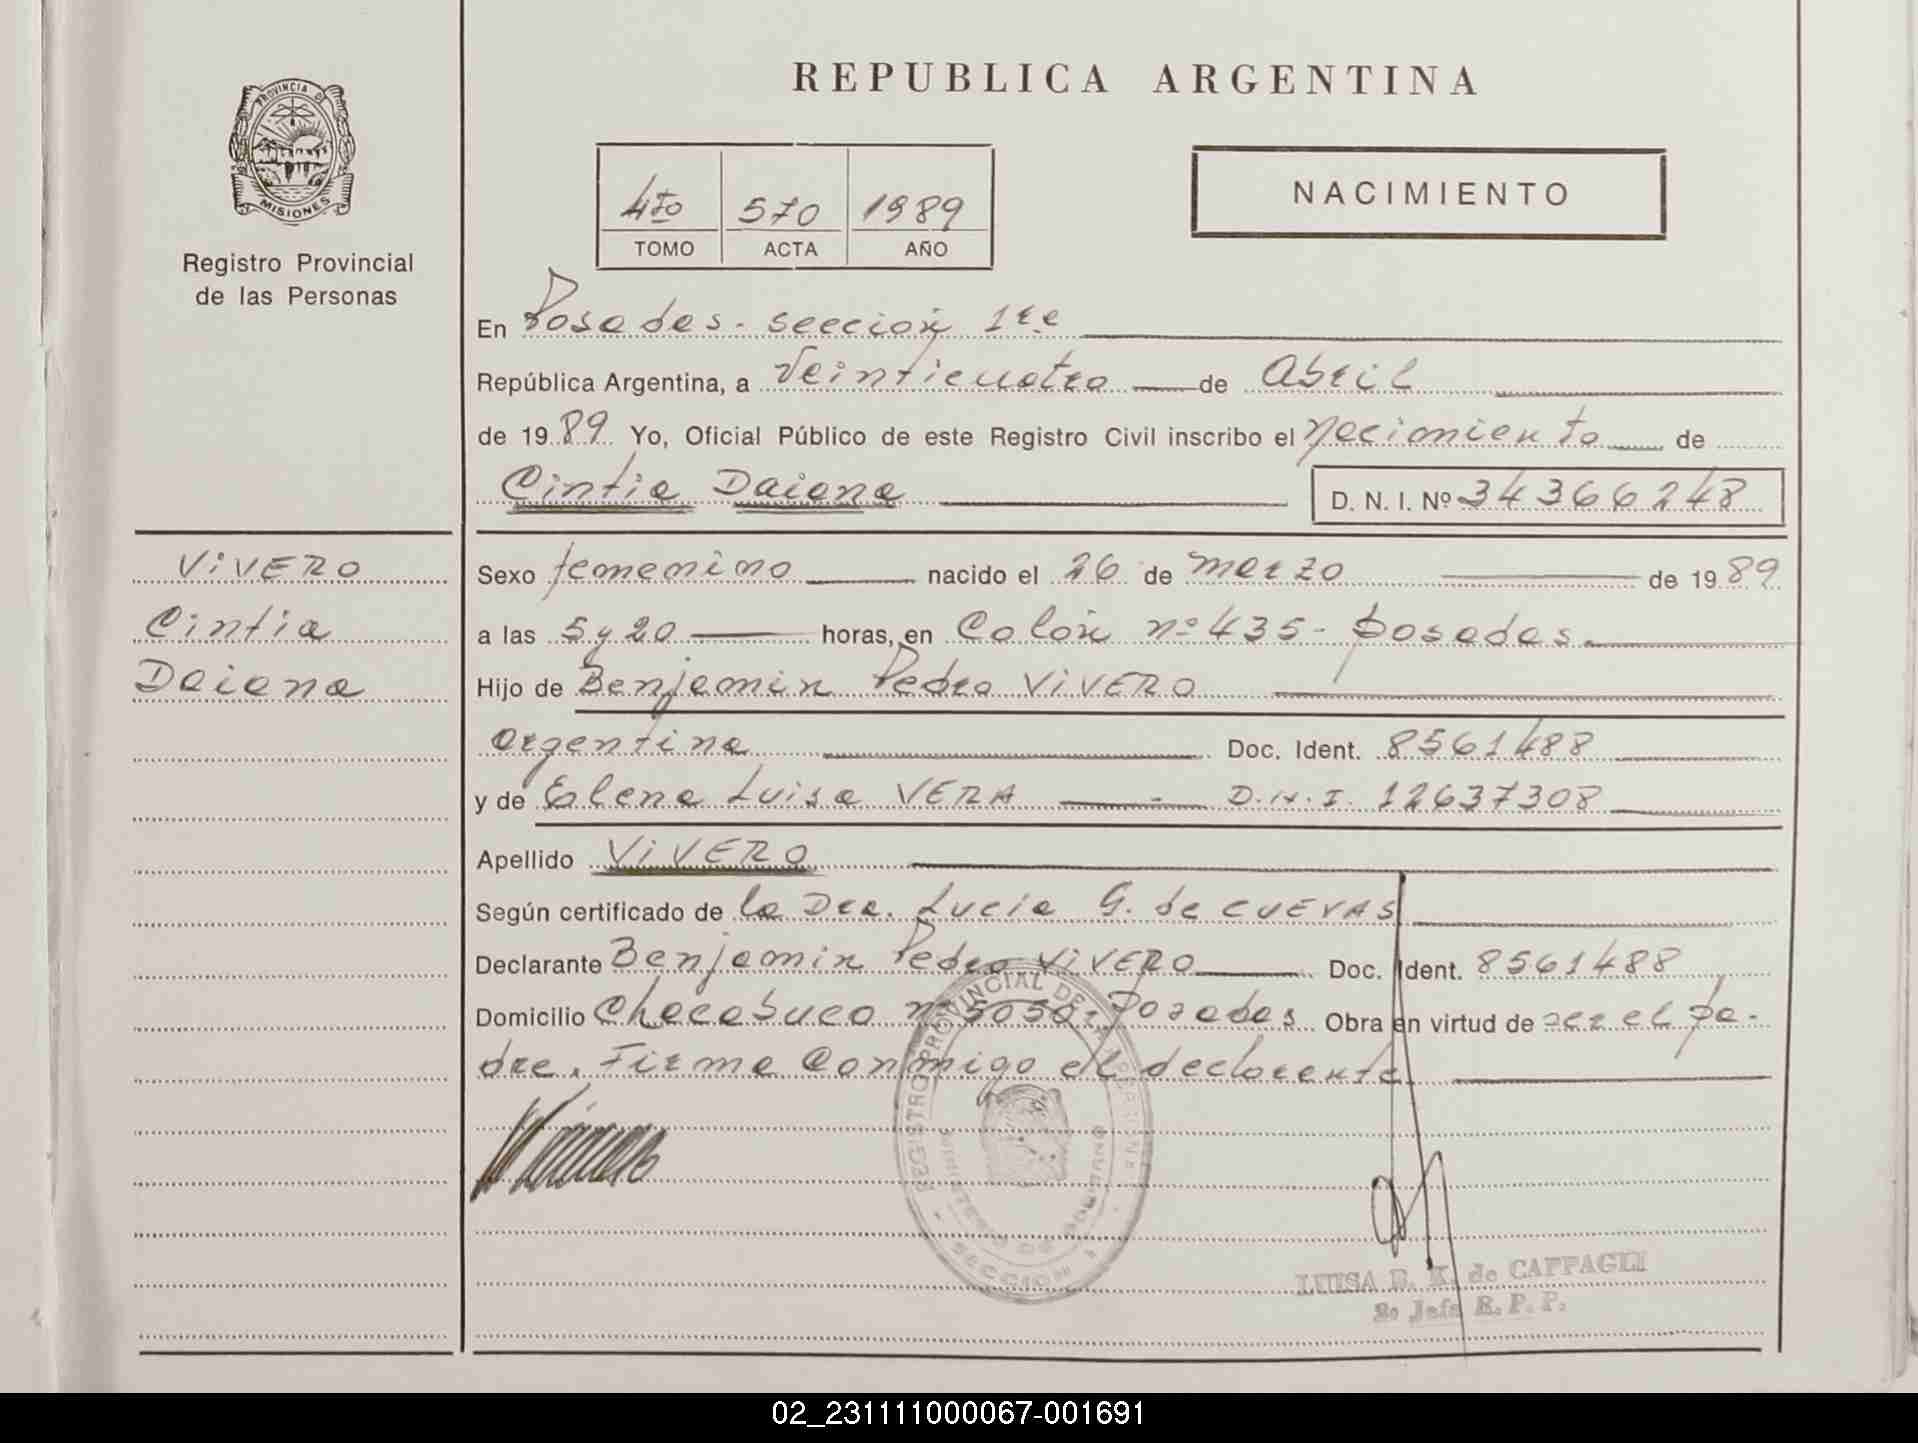 REPUBLICA ARGENTINA
PROVINCIA D
MISIONES
Registro Provincial
de las Personas
4to 570 1989
TOMO ACTA AÑO
NACIMIENTO
En Posadas - sección 1ra
República Argentina, a Veinticuatro de Abril
de 1989 Yo, Oficial Público de este Registro Civil inscribo el Nacimiento de
Cintia Daiana D. N. I. Nº 34366248
VIVERO
Cintia
Daiana
Sexo femenino nacido el 26 de marzo de 1989
a las 5 y 20 horas, en Colón nº 435 - Posadas.
Hijo de Benjamín Pedro VIVERO
Argentina Doc. Ident. 8561488
y de Elena Luisa VERA - D.N.I. 12637308
Apellido VIVERO
Según certificado de la Dra. Lucia G. de CUEVAS
Declarante Benjamín Pedro VIVERO Doc. Ident. 8561488
Domicilio Chacabuco nº 5050 - Posadas Obra en virtud de ser el pa-
dre. Firma Conmigo el declarante.
REGISTRO PROVINCIAL DE
MINISTERIO DE GOBIERNO
SECCION
LUISA E. K. de CAPPAGLI
2o Jefe R. P. P.
02_231111000067-001691